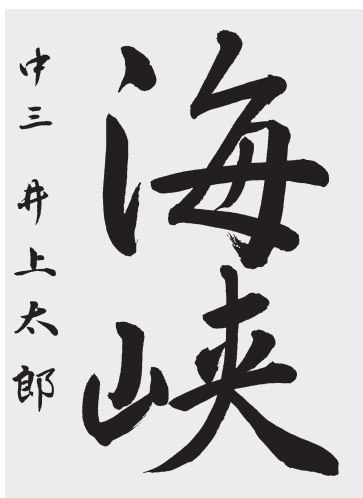 海峡
中三 井上太郎